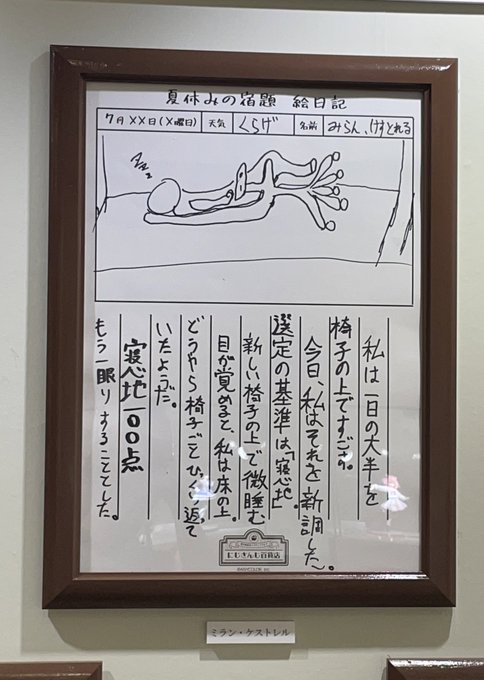 夏休みの宿題 絵日記
7月××日(×曜日) 天気 くらげ 名前 みらん、けすとれる
zzz
私は一日の大半を
椅子の上ですごす。
今日、私はそれを新調した。
選定の基準は、「寝心地」。
新しい椅子の上で微睡む
目が覚めると、私は床の上。
どうやら椅子ごとひっくり返って
いたようだ。
寝心地一〇〇点
もう一眠りすることてした。
にじさんじ百貨店
©ANYCOLOR, Inc.
ミラン・ケストレル